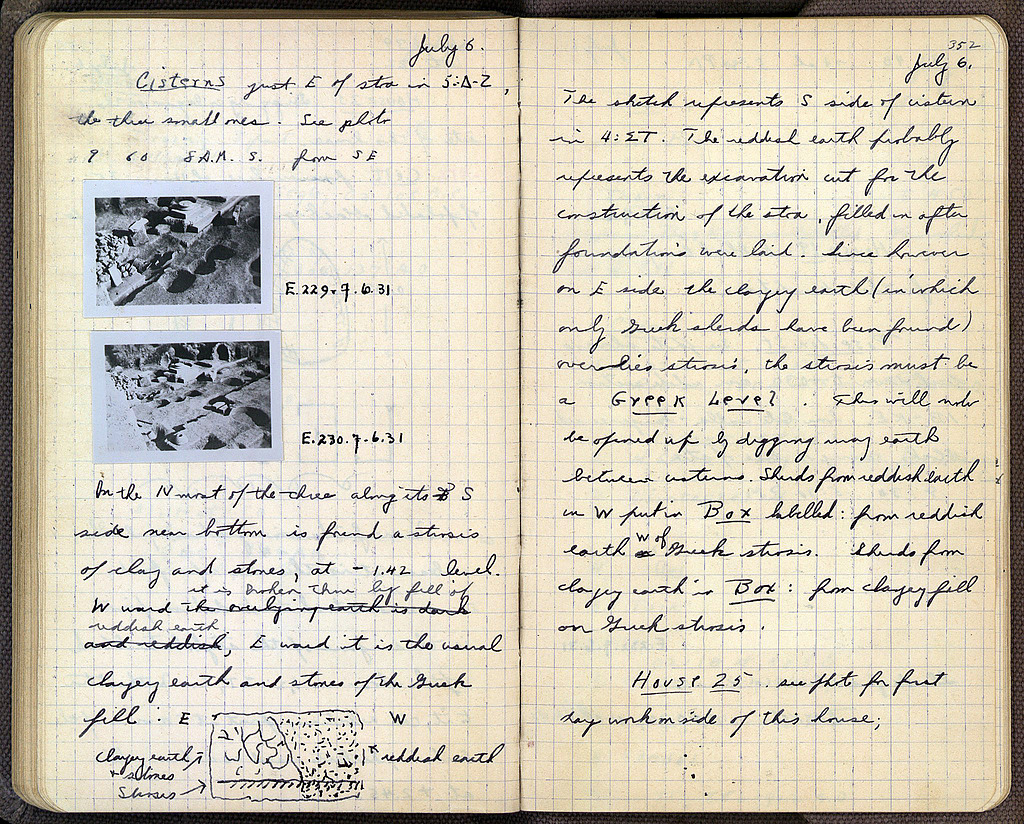 July 6.
Cisterns just E of stoa in 5:Δ-Z,
the three small ones. See photo
9 60 8 A.M. S. from SE
E.229.7.6.31
E.230.7.6.31
In the N most of the three along its S
side near bottom is found a strosis
of clay and stones, at -1.42 level.
it is broken thru by fill of
W ward the overlying earth is dark
reddish earth
and reddish, E ward it is the usual
clayey earth and stones of the Greek
fill : E W
clayey earth reddish earth
+ stones
Strosis
352
July 6.
The sketch represents S side of cistern
in 4:ΣT. The reddish earth probably
represents the excavation cut for the
construction of the stoa, filled in after
foundations were laid. Since however
on E side the clayey earth (in which
only Greek sherds have been found)
overlies strosis, the strosis must be
a Greek Level. This will now
be opened up by digging away earth
between cisterns. Sherds from reddish earth
in W put in Box labelled: from reddish
earth W of Greek strosis. Sherds from
clayey earth in Box: from clayey fill
on Greek strosis.
House 25. see photo for first
day work on side of this house;